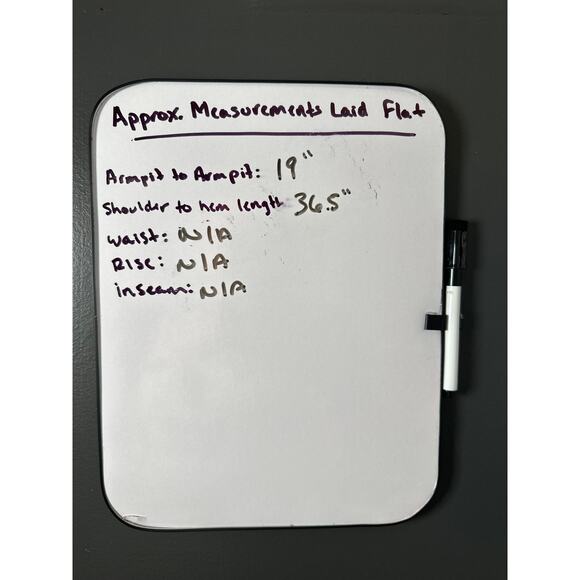 Approx. Measurements Laid Flat
Armpit to Armpit: 19"
Shoulder to hem length: 36.5"
Waist: N/A
Rise: N/A
inseam: N/A